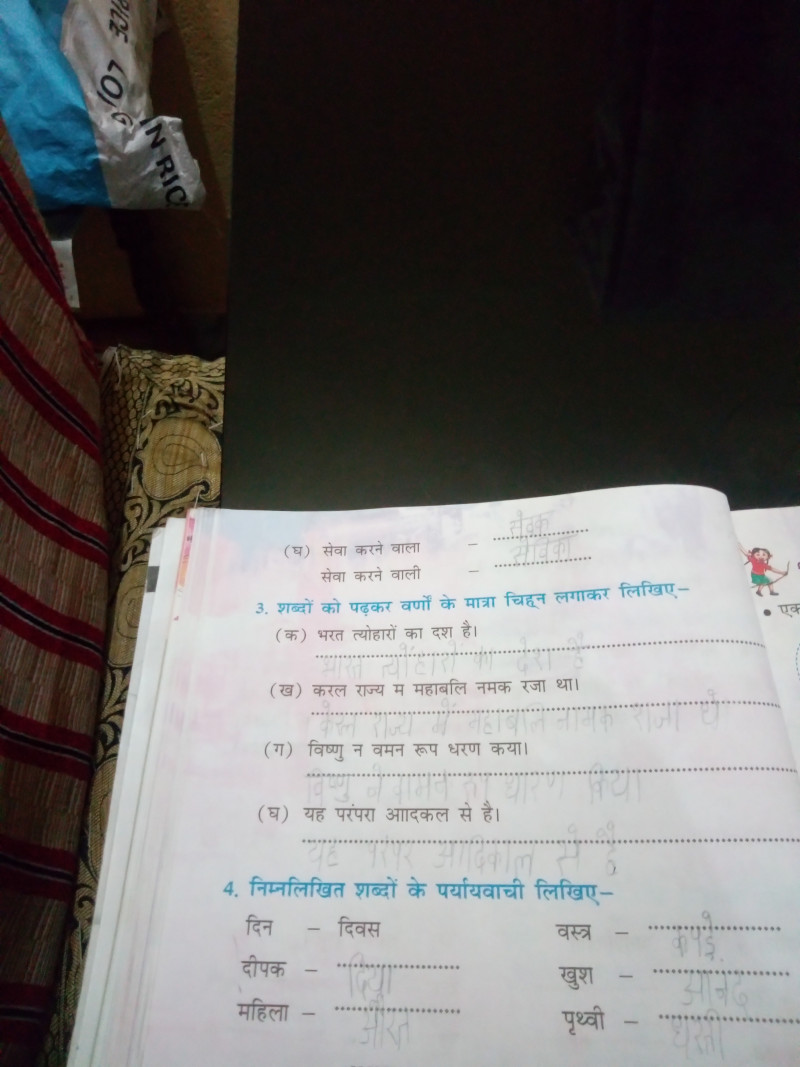 107 3016
IN RIC
(घ) सेवा करने वाला – सेवक
सेवा करने वाली – सेविका
3. शब्दों को पढ़कर वर्णों के मात्रा चिह्न लगाकर लिखिए–
(क) भरत त्योहारों का दश है।
भारत त्योंहारों का देश है
(ख) करल राज्य म महाबलि नमक रजा था।
केरल राज्य में महाबलि नामक राजा थे
(ग) विष्णु न वमन रूप धरण कया।
विष्णु ने वामन का धारण किया
(घ) यह परंपरा आादकल से है।
यह परंपर आदिकाल से है
4. निम्नलिखित शब्दों के पर्यायवाची लिखिए–
दिन – दिवस वस्त्र – कपड़े
दीपक – दिया खुश – आनंद
महिला – औरत पृथ्वी – धरती
• एक